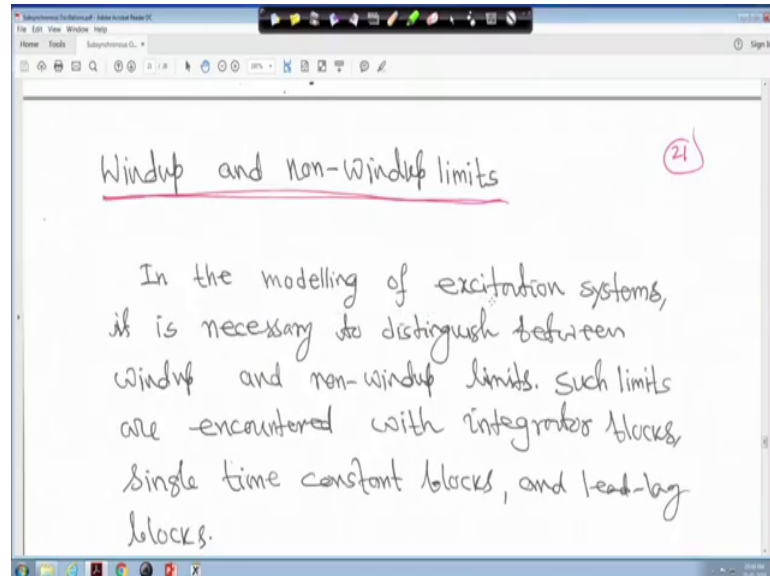 Subsynchronous Oscillations.pdf - Adobe Acrobat Reader DC
File Edit View Window Help
Home Tools Subsynchronous O... ×
Sign I
Windup and non-windup limits
21
In the modelling of excitation systems,
it is necessary to distinguish between
windup and non-windup limits. Such limits
are encountered with integrator blocks,
single time constant blocks, and lead-lag
blocks.